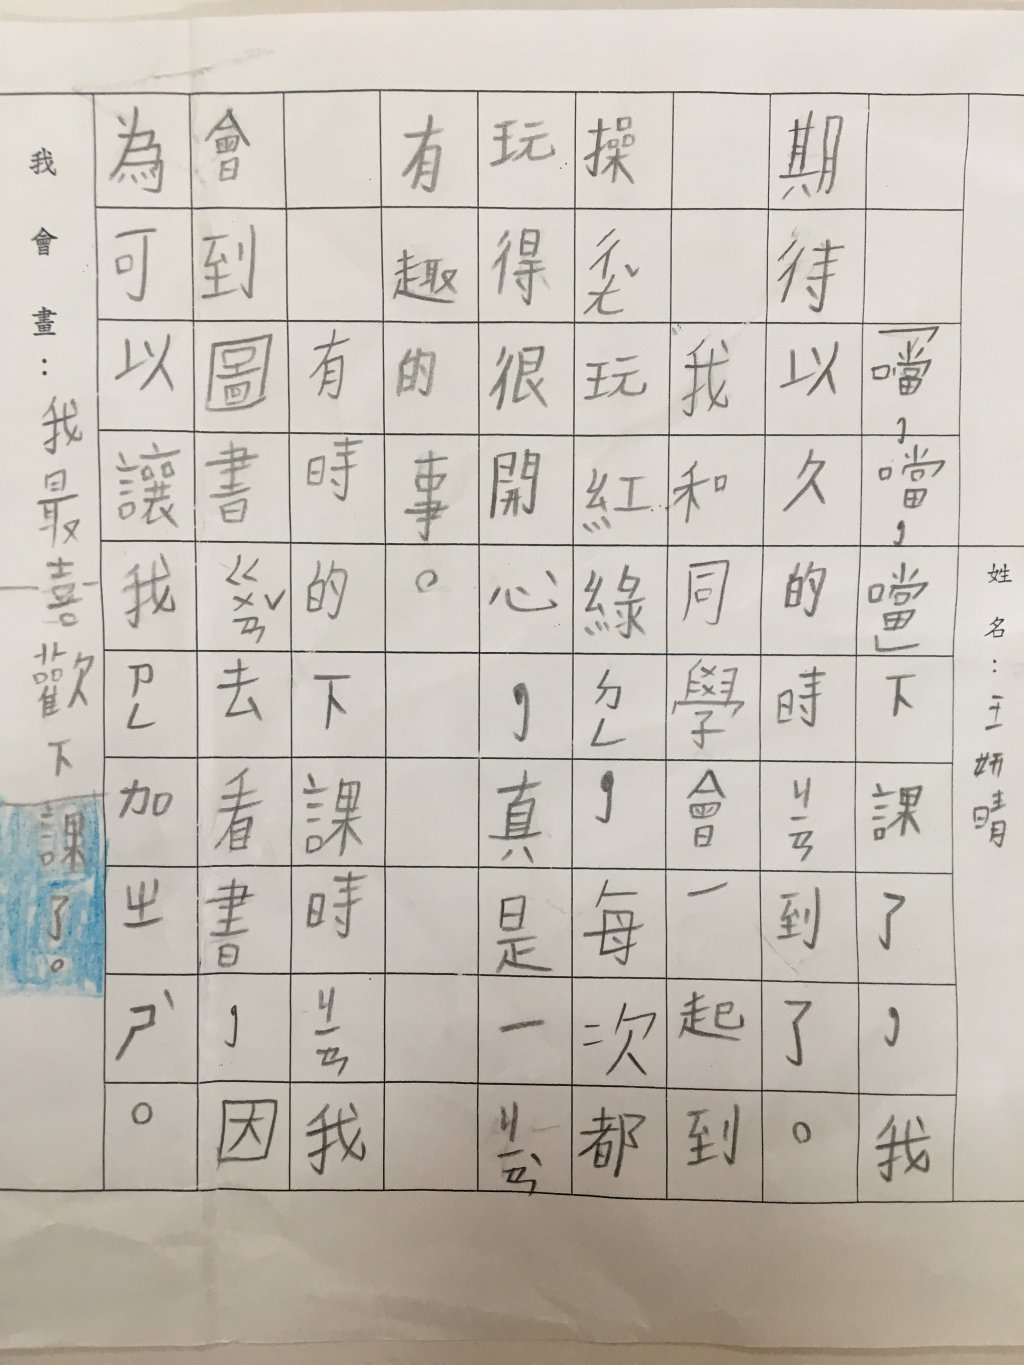 姓名：王妍晴
「噹，噹，噹」下課了，我
期待以久的時ㄐㄧㄢ到了。
我和同學會一起到
操ㄔㄤˇ玩紅綠ㄉㄥ，每次都
玩得很開心，真是一ㄐㄧㄢˋ
有趣的事。
有時的下課時ㄐㄧㄢ我
會到圖書ㄍㄨㄢˇ去看書，因
為可以讓我ㄗㄥ加ㄓㄕˋ。
我會畫：我最喜歡下課了。